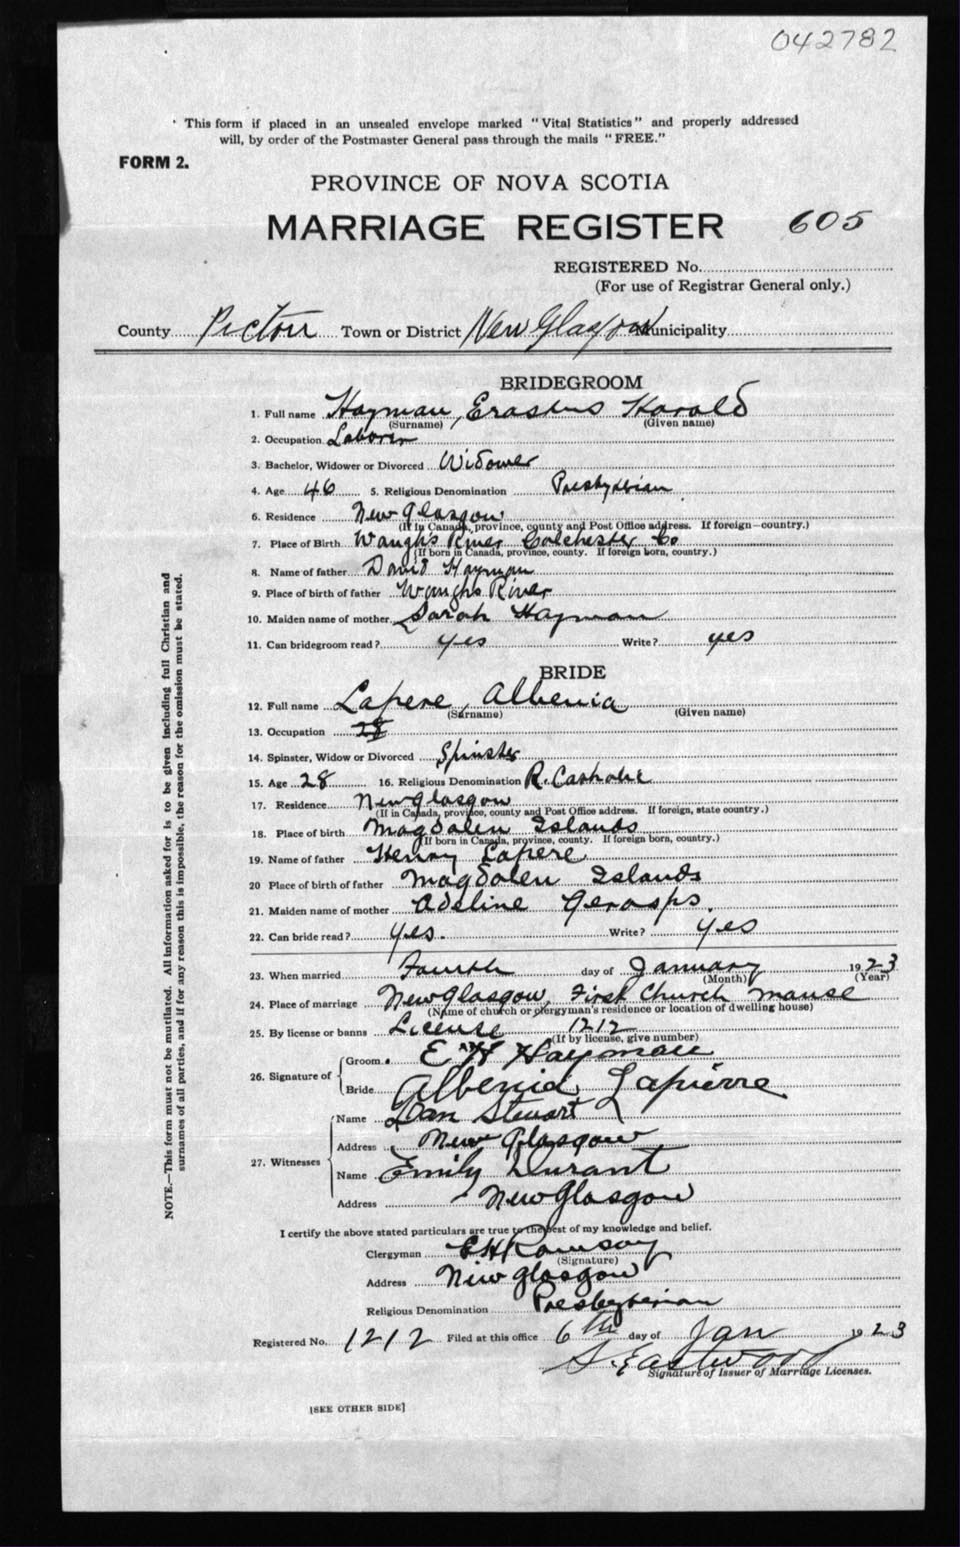 042782
This form if placed in an unsealed envelope marked "Vital Statistics" and properly addressed
will, by order of the Postmaster General pass through the mails "FREE."
FORM 2.
PROVINCE OF NOVA SCOTIA
MARRIAGE REGISTER 605
REGISTERED No.
(For use of Registrar General only.)
County Pictou Town or District New Glasgow Municipality
BRIDEGROOM
1. Full name Hayman, Erastus Harold
(Surname) (Given name)
2. Occupation Laborer
3. Bachelor, Widower or Divorced Widower
4. Age 46 5. Religious Denomination Presbyterian
6. Residence New Glasgow
(If in Canada, province, county and Post Office address. If foreign—country.)
7. Place of Birth Waughs River Colchester Co
(If born in Canada, province, county. If foreign born, country.)
8. Name of father David Hayman
9. Place of birth of father Waughs River
10. Maiden name of mother Sarah Hayman
11. Can bridegroom read? yes Write? yes
BRIDE
12. Full name Lapere, Albenia
(Surname) (Given name)
13. Occupation 28
14. Spinster, Widow or Divorced Spinster
15. Age 28 16. Religious Denomination R. Catholic
17. Residence New Glasgow
(If in Canada, province, county and Post Office address. If foreign, state country.)
18. Place of birth Magdalen Islands
(If born in Canada, province, county. If foreign born, country.)
19. Name of father Henry Lapere
20 Place of birth of father Magdalen Islands
21. Maiden name of mother Adeline
22. Can bride read? yes. Write? yes
23. When married Fourth day of January 1923
(Month) (Year)
24. Place of marriage New Glasgow, First Church manse
(Name of church or clergyman's residence or location of dwelling house)
25. By license or banns License 1212
(If by license, give number)
26. Signature of Groom E H Hayman
Bride Albenia Lapierre
27. Witnesses Name Dan Stewart
Address New Glasgow
Name Emily Durant
Address New Glasgow
I certify the above stated particulars are true to the best of my knowledge and belief.
Clergyman E H Ramsay
(Signature)
Address New Glasgow
Religious Denomination Presbyterian
Registered No. 1212 Filed at this office 6th day of Jan 1923
S. Eastwood
Signature of Issuer of Marriage Licenses.
[SEE OTHER SIDE]
NOTE.—This form must not be mutilated. All information asked for is to be given including full Christian and
surnames of all parties, and if for any reason this is impossible, the reason for the omission must be stated.